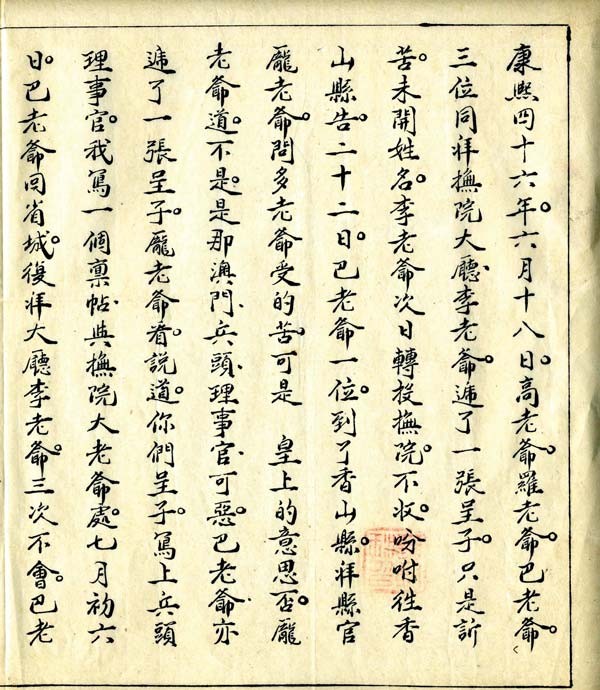 康熙四十六年。六月十八日。高老爺。羅老爺。巴老爺。
三位同拜撫院大廳李老爺。遞了一張呈子。只是訴
苦。未開姓名。李老爺次日轉投撫院。不收。吩咐徃香
山縣告。二十二日。巴老爺一位。到了香山縣。拜縣官
龐老爺。問多老爺受的苦。可是 皇上的意思否。龐
老爺道。不是。是那澳門、兵頭、理事官、可惡。巴老爺亦
遞了一張呈子。龐老爺看。說道。你們呈子。寫上兵頭
理事官。我寫一個稟帖、與撫院大老爺處。七月初六
日。巴老爺回省城。復拜大廳李老爺。三次不會。巴老